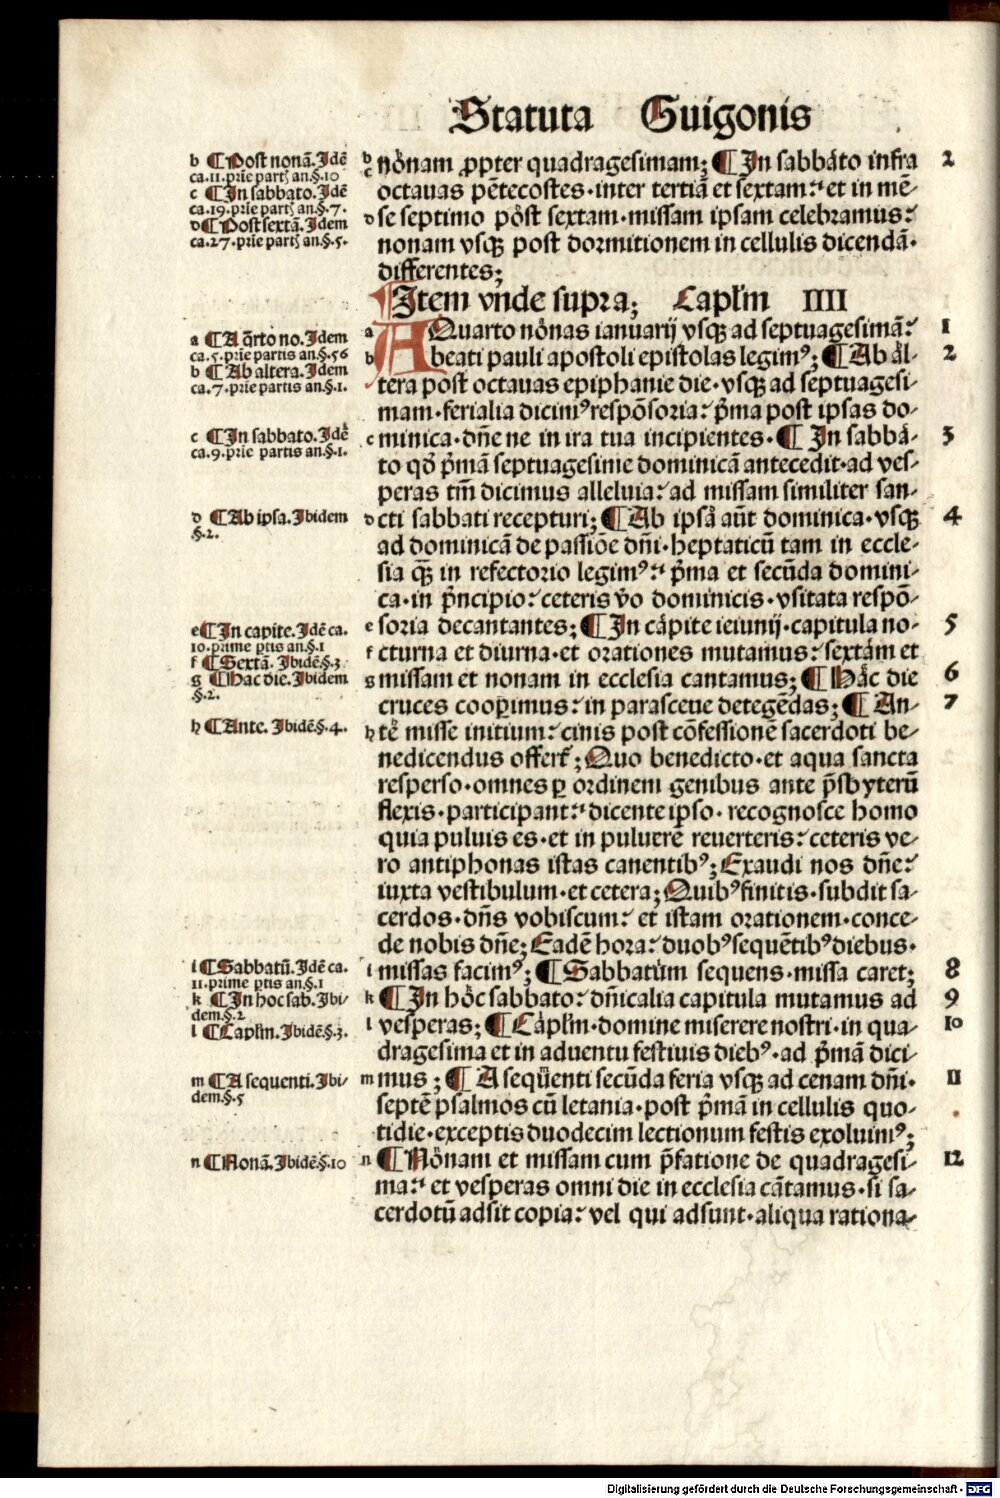 Statuta Guigonis
b ¶Post nonā. Idē
ca.11.prīe part[is] an.§.10
c ¶In sabbato. Idē
ca.19.prīe part[is] an.§.7.
d ¶Post sextā. Idem
ca.27.prīe part[is] an.§.5.
b nònam ꝓpter quadragesimam; ¶In sabbàto infra 2
c octauas pētecostes·inter tertiā et sextam: et in mē-
d se septimo pòst sextam·missam ipsam celebramus:
nonam vsqꝫ post dormitionem in cellulis dicendā·
differentes;
¶Item vnde supra; Caplm IIII
a ¶A q̄rto no. Idem
ca.5.prīe partis an.§.56
b ¶Ab altera. Idem
ca.7.prīe partis an.§.1.
a AQuarto nònas ianuarij vsqꝫ ad septuagesimā: 1
b beati pauli apostoli epistolas legimꝰ; ¶Ab àl- 2
tera post octauas epiphanie die·vsqꝫ ad septuagesi-
mam·ferialia dicimꝰ respōsoria: p̄ma post ipsas do-
c ¶In sabbato. Idē
ca.9.prīe partis an.§.1.
c minica·dn̄e ne in ira tua incipientes·¶In sabbà- 3
to qd̄ p̄mā septuagesime dominicā antecedit·ad ves-
peras tm̄ dicimus alleluia: ad missam similiter san-
d ¶Ab ipsa. Ibidem
§.2.
d cti sabbati recepturi; ¶Ab ipsà aūt dominica·vsqꝫ 4
ad dominicā de passiōe dn̄i·heptaticū tam in eccle-
sia qꝫ̄ in refectorio legimꝰ: p̄ma et secūda domini-
ca·in p̄ncipio: ceteris v̄o dominicis·vsitata respō-
e ¶In capite. Idē ca.
10.prime ꝑtis an.§.1
f ¶Sextā. Ibidē§.3
g ¶Hac die. Ibidem
§.2.
e soria decantantes; ¶In càpite ieiunij·capitula no- 5
f cturna et diurna·et orationes mutamus: sextàm et
g missam et nonam in ecclesia cantamus; ¶Hàc die 6
cruces cooꝑimus: in parasceue detegēdas; ¶An- 7
h ¶Ante. Ibidē§.4.
h tè misse initium: cinis post cōfessionē sacerdoti be-
nedicendus offert᷑; Quo benedicto·et aqua sancta
resperso·omnes ꝑ ordinem genibus ante p̄sbyterū
flexis·participant: dicente ipso·recognosce homo
quia puluis es·et in puluerē reuerteris: ceteris ve-
ro antiphonas istas canentibꝰ; Exaudi nos dn̄e:
iuxta vestibulum·et cetera; Quibꝰ finitis·subdit sa-
cerdos·dn̄s vobiscum: et istam orationem·conce-
de nobis dn̄e; Eadē hora: duobꝰ sequētibꝰ diebus·
i ¶Sabbatū. Idē ca.
11.prime ꝑtis an.§.1
k ¶In hoc sab. Ibi-
dem.§.2
l ¶Caplm. Ibidē§.3.
i missas facimꝰ; ¶Sabbatùm sequens·missa caret; 8
k ¶In hòc sabbato: dn̄icalia capitula mutamus ad 9
l vesperas; ¶Càplm·domine miserere nostri·in qua- 10
dragesima et in aduentu festiuis diebꝰ·ad p̄mā dici-
m ¶A sequenti. Ibi-
dem.§.5
m mus; ¶A seqùenti secūda feria vsqꝫ ad cenam dn̄i· 11
septē psalmos cū letania·post p̄mā in cellulis quo-
tidie·exceptis duodecim lectionum festis exoluimꝰ;
n ¶Nonā. Ibidē§.10
n ¶Nònam et missam cum p̄fatione de quadragesi- 12
ma: et vesperas omni die in ecclesia cātamus·si sa-
cerdotū adsit copia: vel qui adsunt·aliqua rationa-
Digitalisierung gefördert durch die Deutsche Forschungsgemeinschaft · DFG